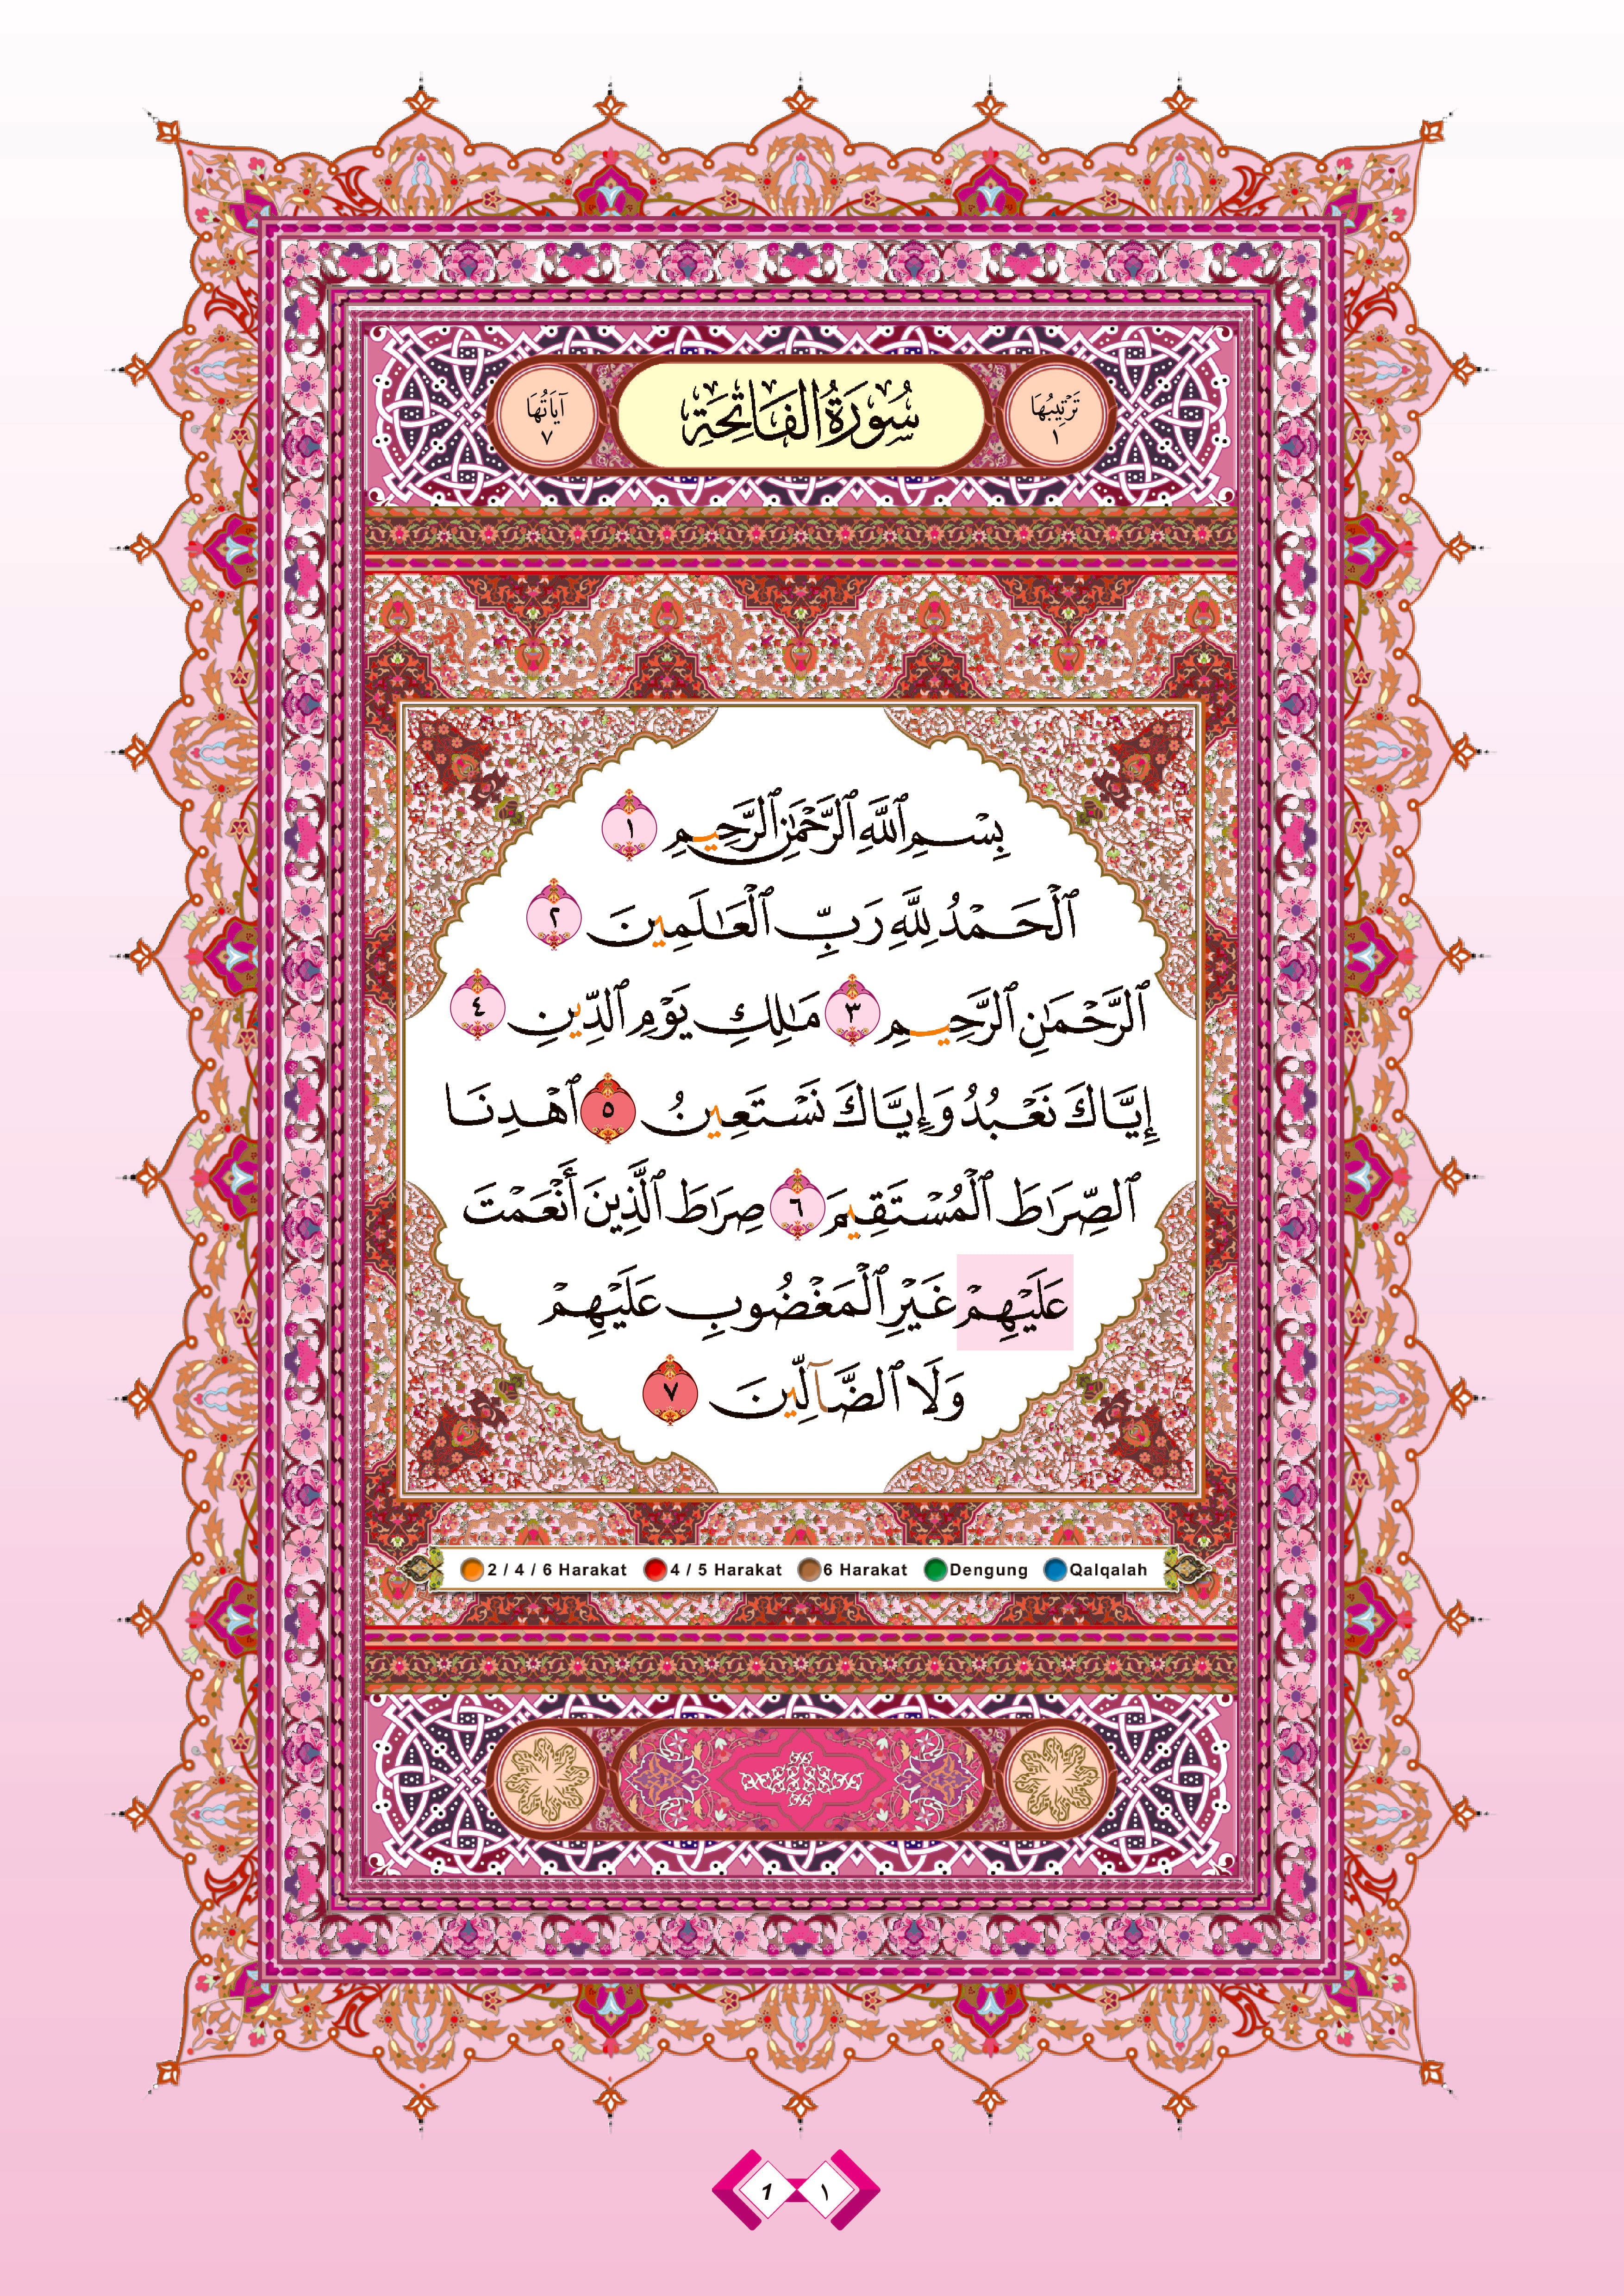 ترتيبها
١
سُورَةُ الفَاتِحَةِ
آيَاتُهَا
٧
بِسْمِ ٱللَّهِ ٱلرَّحْمَٰنِ ٱلرَّحِيمِ ١
ٱلْحَمْدُ لِلَّهِ رَبِّ ٱلْعَٰلَمِينَ ٢
ٱلرَّحْمَٰنِ ٱلرَّحِيمِ ٣ مَٰلِكِ يَوْمِ ٱلدِّينِ ٤
إِيَّاكَ نَعْبُدُ وَإِيَّاكَ نَسْتَعِينُ ٥ ٱهْدِنَا
ٱلصِّرَٰطَ ٱلْمُسْتَقِيمَ ٦ صِرَٰطَ ٱلَّذِينَ أَنْعَمْتَ
عَلَيْهِمْ غَيْرِ ٱلْمَغْضُوبِ عَلَيْهِمْ
وَلَا ٱلضَّآلِّينَ ٧
2 / 4 / 6 Harakat 4 / 5 Harakat 6 Harakat Dengung Qalqalah
1 ١